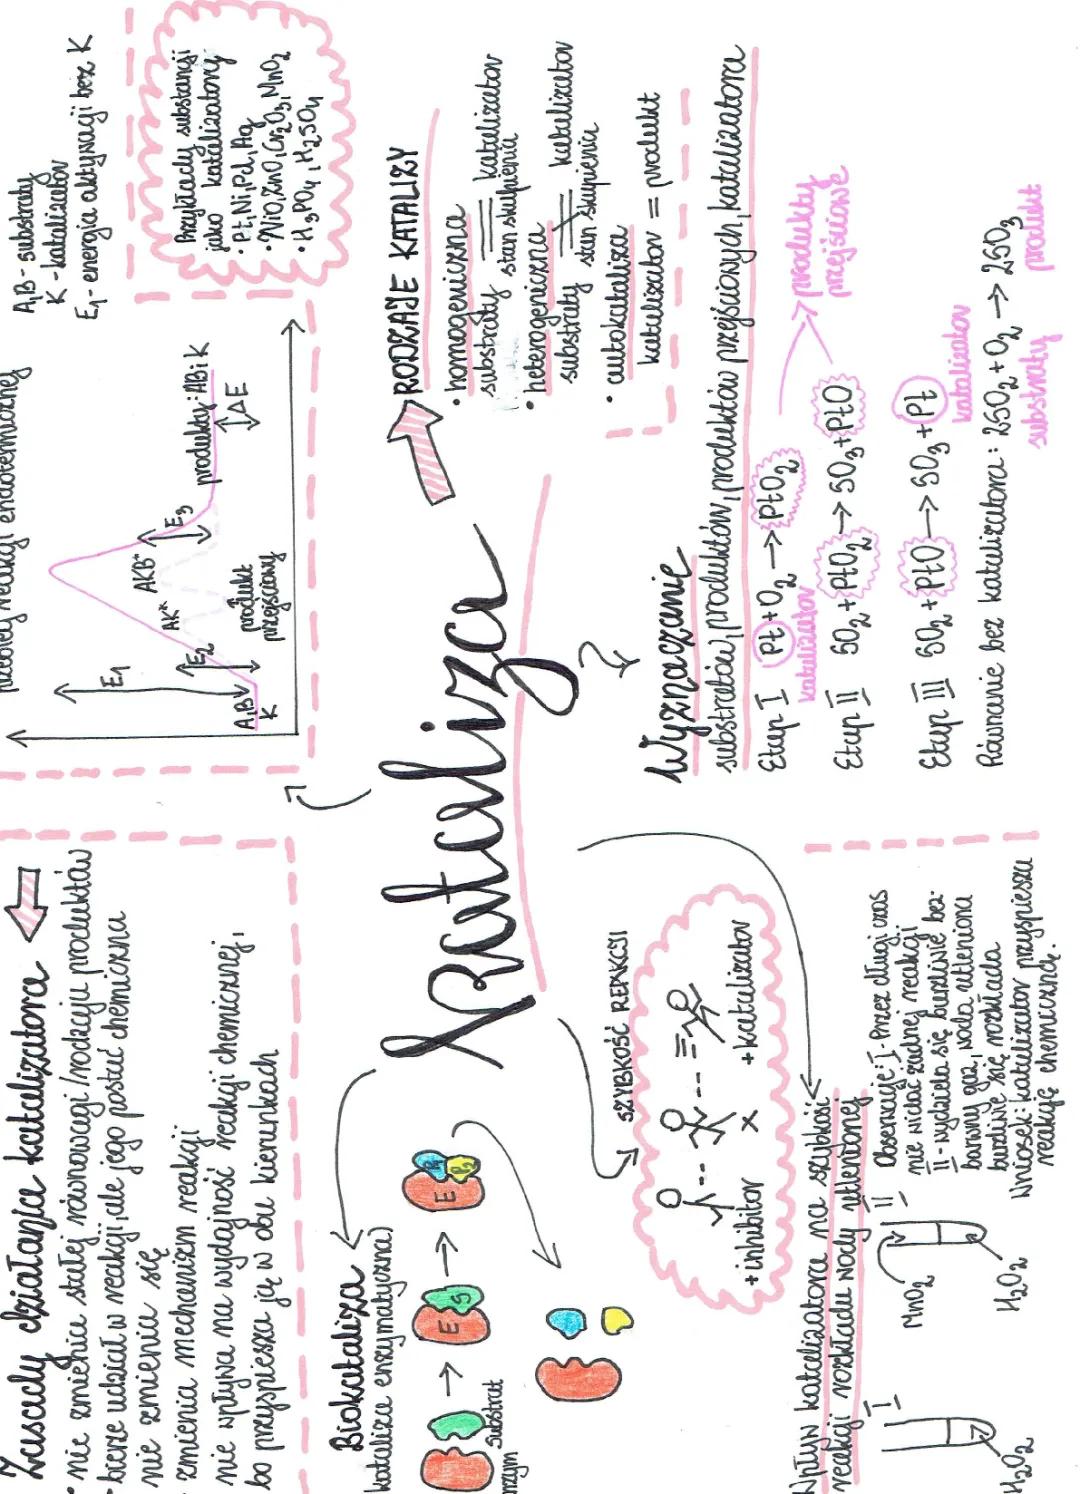 Zasady działania katalizatora
• nie zmienia stałej równowagi/rodzaju produktów
• bierze udział w reakcji, ale jego postać chemiczna
nie zmienia się
• zmienia mechanizm reakcji
nie wpływa na wydajność reakcji chemicznej,
bo przyspiesza ją w obu kierunkach
reakcji endotermicznej
E₁
A,B
K
E₂
AK*
AKB*
E₃
produkt
przejściowy
produkty: AB i K
ΔE
A,B - substraty
K - katalizator
E₁ - energia aktywacji bez K
Przykłady substancji
jako katalizatory
• Pt, Ni, Pd, Ag
• NiO, ZnO, Cr₂O₃, MnO₂
• H₃PO₄, H₂SO₄
Kataliza
RODZAJE KATALIZY
• homogeniczna
substraty = katalizator
stan skupienia
• heterogeniczna
substraty ≠ katalizator
stan skupienia
• autokataliza
katalizator = produkt
Biokataliza
(kataliza enzymatyczna)
substrat
E S
E P₁ P₂
SZYBKOŚĆ REAKCJI
+inhibitor x +katalizator
Wyznaczanie
substratów, produktów, produktów przejściowych, katalizatora
Etap I Pt + O₂ → PtO₂
katalizator
produkty
przejściowe
Etap II SO₂ + PtO₂ → SO₃ + PtO
Etap III SO₂ + PtO → SO₃ + Pt
katalizator
Równanie bez katalizatora: 2SO₂ + O₂ → 2SO₃
substraty produkt
Wpływ katalizatora na szybkość
reakcji rozkładu wody utlenionej
I
H₂O₂
II
MnO₂
H₂O₂
Obserwacje: I - Przez długi czas
nie widać żadnej reakcji
II - wydziela się burzliwie bez-
barwny gaz, woda utleniona
burzliwie się rozkłada
Wniosek: katalizator przyspiesza
reakcję chemiczną.